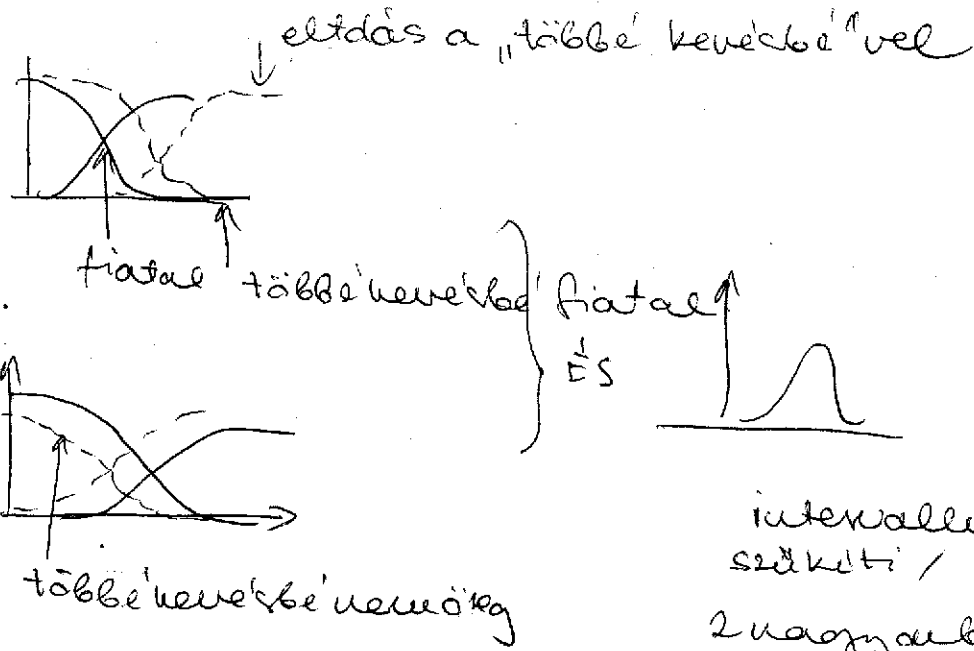 eltdás a „többé kevésbé"vel
fiatal többékevésbé fiatal
ÉS
többékevésbé nem öreg
intervallu
szűkíti /
2 nagyon